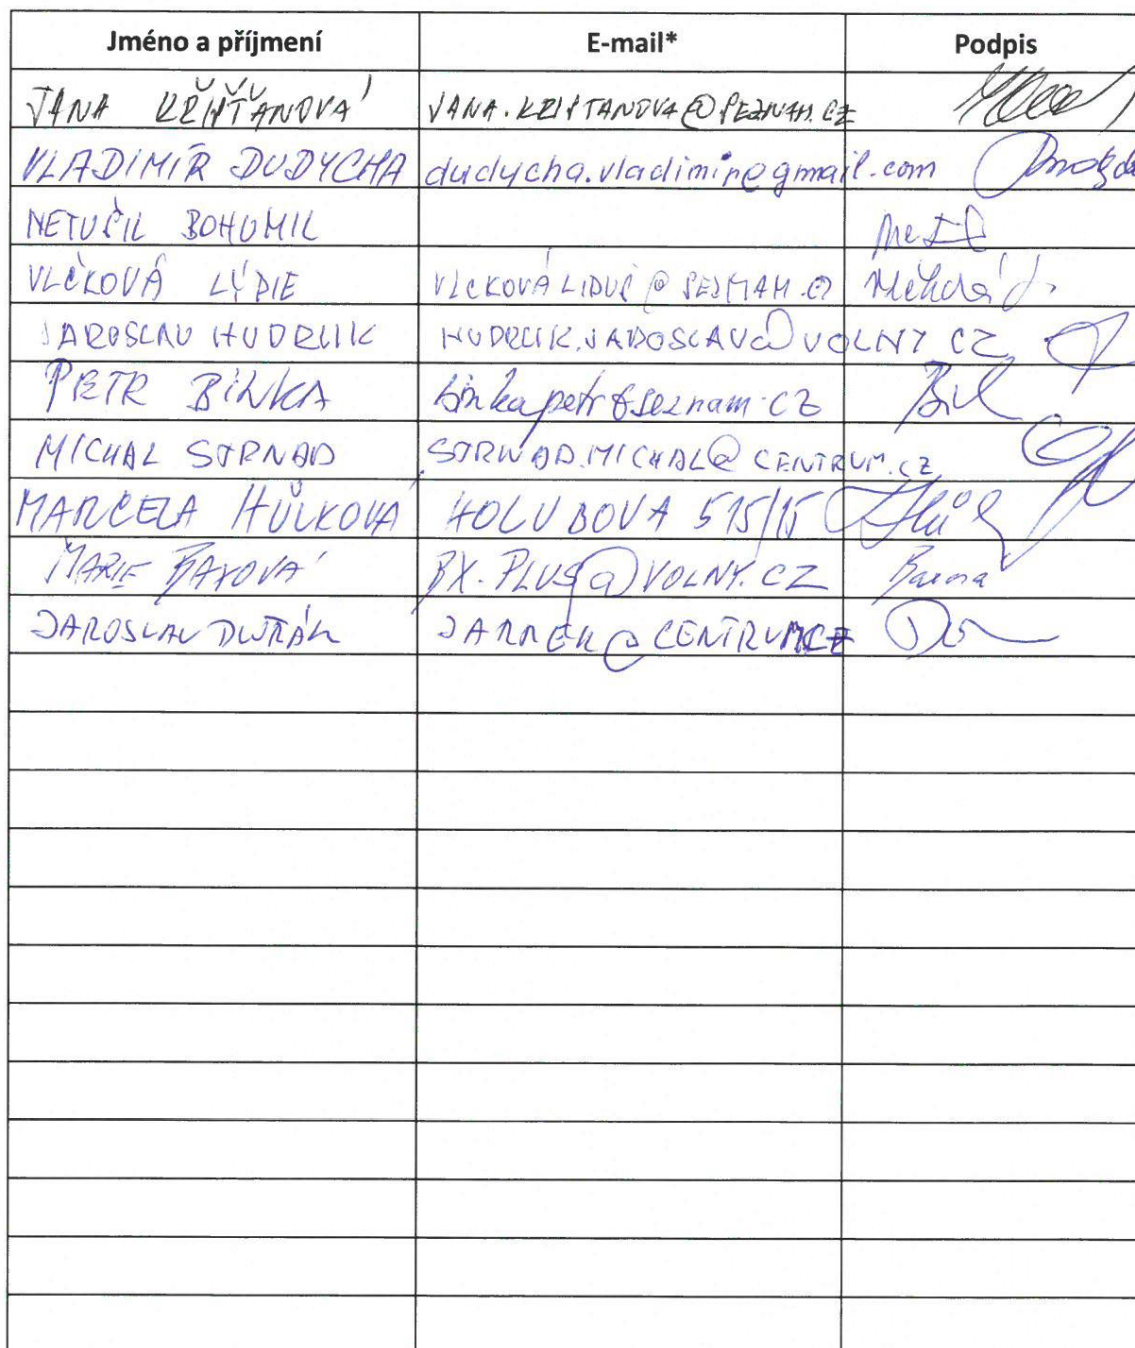 Jméno a příjmení E-mail* Podpis
JANA KŘIŠŤANOVÁ JANA.KRISTANOVA@SEZNAM.CZ
VLADIMÍR DUDYCHA dudycha.vladimir@gmail.com
NETUŠIL BOHUMIL
VLČKOVÁ LÝDIE VLCKOVÁLIDUŠ@SEZNAM.CZ
JAROSLAV HUDRLIK HUDRLIK.JAROSLAV@VOLNY.CZ
PETR BÍNKA binkapetr@seznam.cz
MICHAL STRNAD STRNAD.MICHAL@CENTRUM.CZ
MARCELA HŮLKOVÁ HOLUBOVA 515/15
MARIE BAXOVÁ BX.PLUS@VOLNY.CZ
JAROSLAV DVOŘÁK JARNEK@CENTRUM.CZ